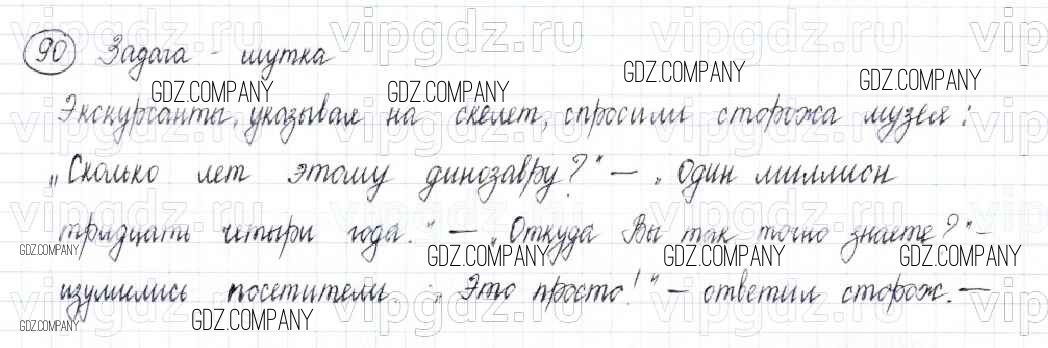 90 Задача - шутка
Экскурсанты, указывая на скелет, спросили сторожа музея:
„Сколько лет этому динозавру?" — „Один миллион
тридцать четыри года." — „Откуда Вы так точно знаете?" —
изумились посетители. „Это просто!" — ответил сторож. —